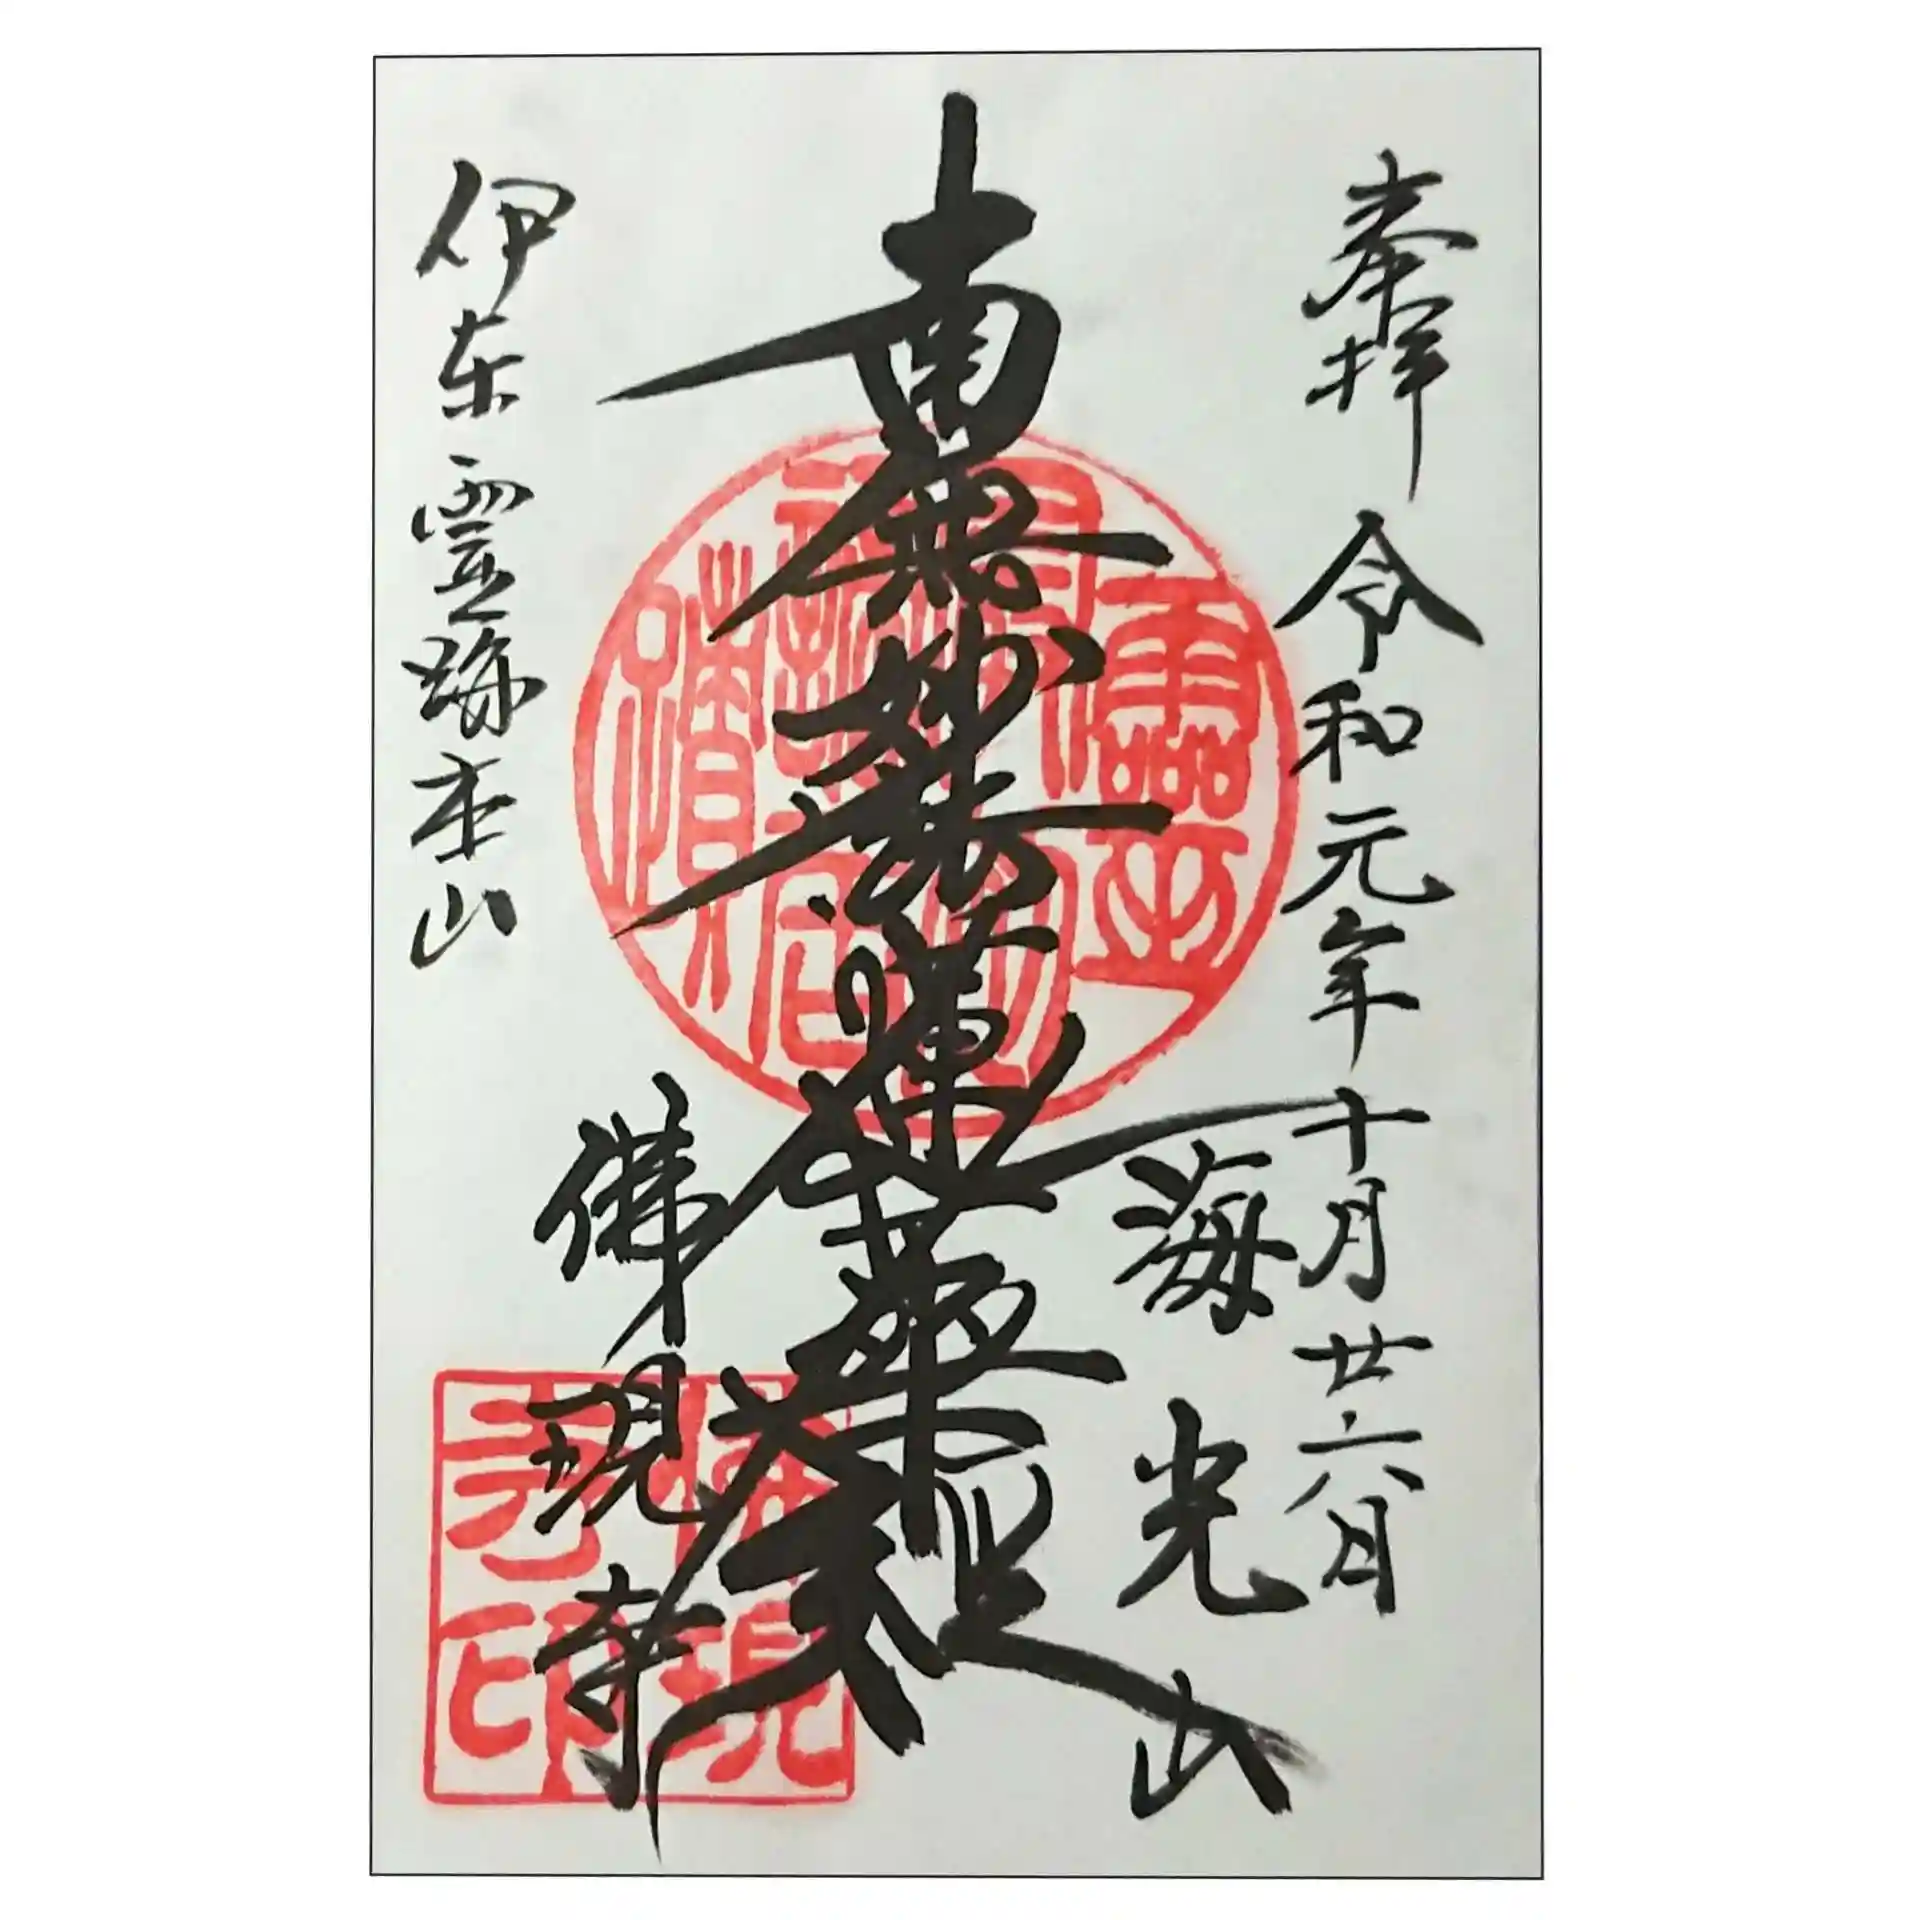 奉拝 令和元年十月廿六日
海光山
南無妙法蓮華経
佛現寺
伊东霊跡本山
佛現
寺印